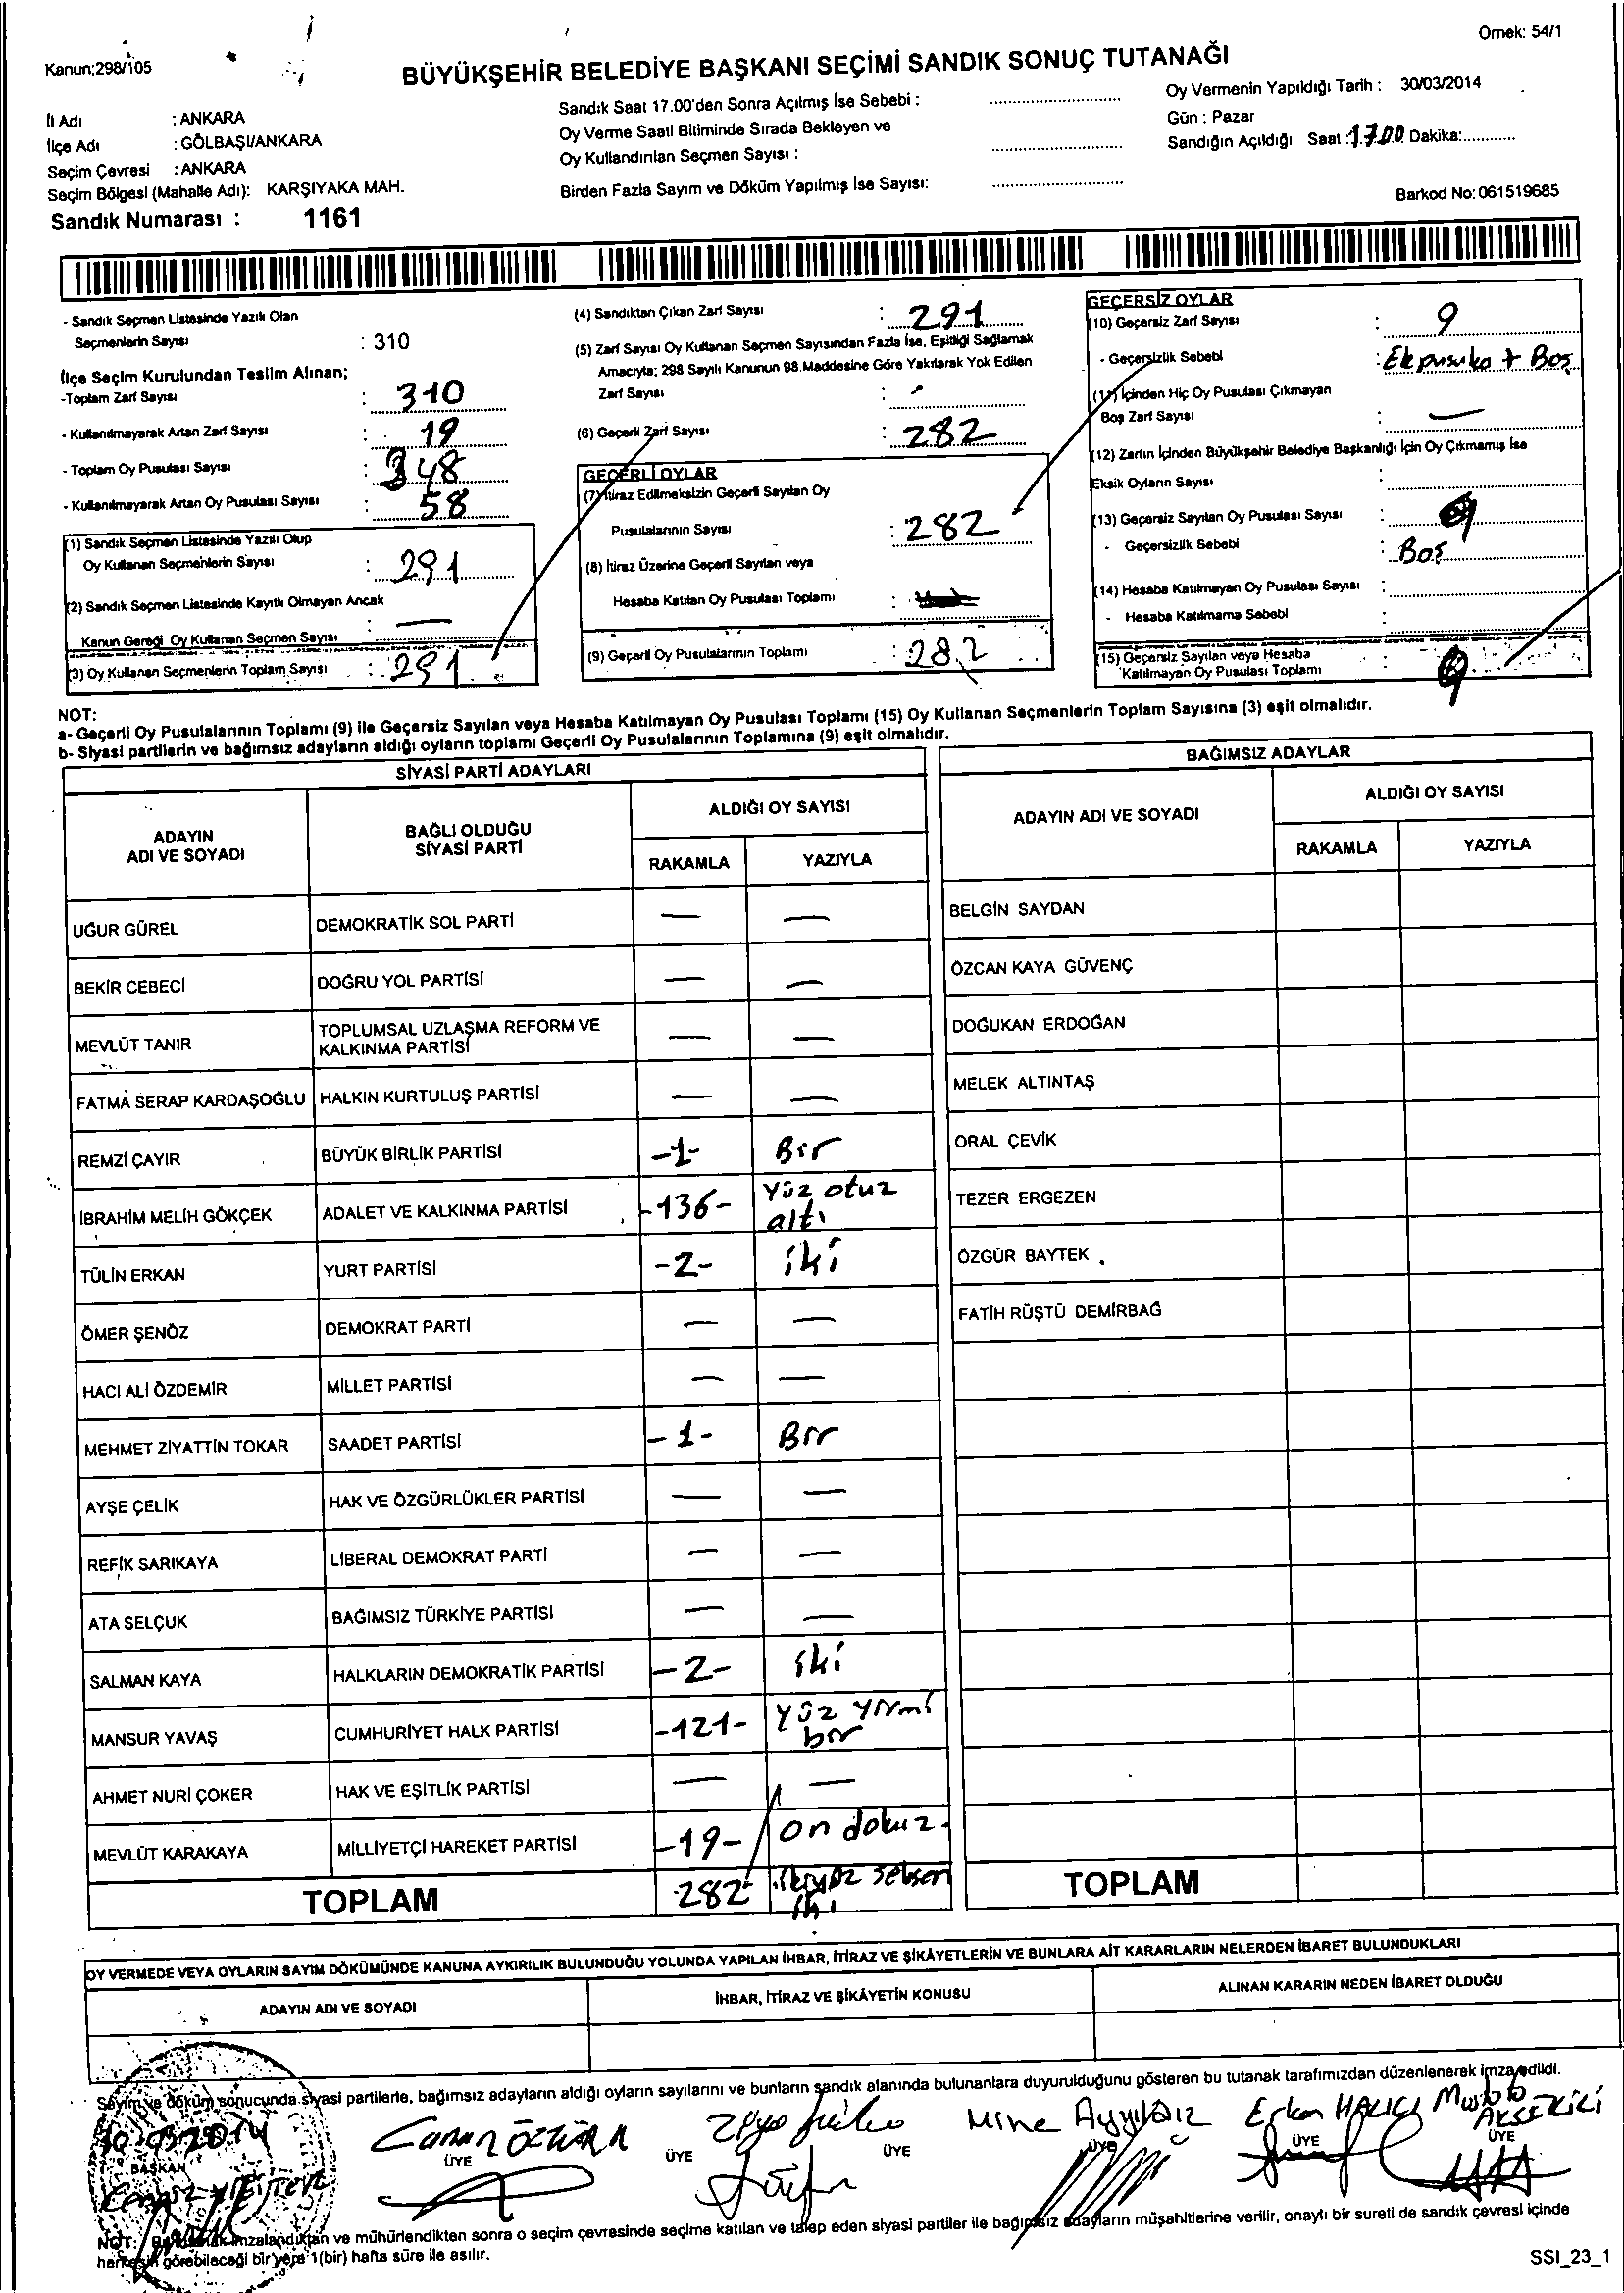 Örnek: 54/1
Kanun;298/105
BÜYÜKŞEHİR BELEDİYE BAŞKANI SEÇİMİ SANDIK SONUÇ TUTANAĞI
İl Adı : ANKARA
İlçe Adı : GÖLBAŞI/ANKARA
Seçim Çevresi : ANKARA
Seçim Bölgesi (Mahalle Adı): KARŞIYAKA MAH.
Sandık Numarası : 1161
Sandık Saat 17.00'den Sonra Açılmış İse Sebebi :
Oy Verme Saati Bitiminde Sırada Bekleyen ve
Oy Kullandırılan Seçmen Sayısı :
Birden Fazla Sayım ve Döküm Yapılmış İse Sayısı:
Oy Vermenin Yapıldığı Tarih : 30/03/2014
Gün : Pazar
Sandığın Açıldığı Saat :17.00 Dakika:
Barkod No: 061519685
- Sandık Seçmen Listesinde Yazılı Olan
Seçmenlerin Sayısı : 310
İlçe Seçim Kurulundan Teslim Alınan;
-Toplam Zarf Sayısı : 310
- Kullanılmayarak Artan Zarf Sayısı : 19
- Toplam Oy Pusulası Sayısı : 348
- Kullanılmayarak Artan Oy Pusulası Sayısı : 58
(1) Sandık Seçmen Listesinde Yazılı Olup
Oy Kullanan Seçmenlerin Sayısı : 291
(2) Sandık Seçmen Listesinde Kayıtlı Olmayan Ancak
Kanun Gereği Oy Kullanan Seçmen Sayısı : —
(3) Oy Kullanan Seçmenlerin Toplam Sayısı : 291
(4) Sandıktan Çıkan Zarf Sayısı : 291
(5) Zarf Sayısı Oy Kullanan Seçmen Sayısından Fazla İse, Eşitliği Sağlamak
Amacıyla; 298 Sayılı Kanunun 98.Maddesine Göre Yakılarak Yok Edilen
Zarf Sayısı : -
(6) Geçerli Zarf Sayısı : 282
GEÇERLİ OYLAR
(7) İtiraz Edilmeksizin Geçerli Sayılan Oy
Pusulalarının Sayısı : 282
(8) İtiraz Üzerine Geçerli Sayılan veya
Hesaba Katılan Oy Pusulası Toplamı :
(9) Geçerli Oy Pusulalarının Toplamı : 282
GEÇERSİZ OYLAR
(10) Geçersiz Zarf Sayısı : 9
- Geçersizlik Sebebi : + Boş
(11) İçinden Hiç Oy Pusulası Çıkmayan
Boş Zarf Sayısı : —
(12) Zarfın İçinden Büyükşehir Belediye Başkanlığı İçin Oy Çıkmamış İse
Eksik Oyların Sayısı :
(13) Geçersiz Sayılan Oy Pusulası Sayısı : 9
- Geçersizlik Sebebi : Boş
(14) Hesaba Katılmayan Oy Pusulası Sayısı :
- Hesaba Katılmama Sebebi :
(15) Geçersiz Sayılan veya Hesaba
Katılmayan Oy Pusulası Toplamı : 9
NOT:
a- Geçerli Oy Pusulalarının Toplamı (9) ile Geçersiz Sayılan veya Hesaba Katılmayan Oy Pusulası Toplamı (15) Oy Kullanan Seçmenlerin Toplam Sayısına (3) eşit olmalıdır.
b- Siyasi partilerin ve bağımsız adayların aldığı oyların toplamı Geçerli Oy Pusulalarının Toplamına (9) eşit olmalıdır.
SİYASİ PARTİ ADAYLARI
ADAYIN
ADI VE SOYADI
BAĞLI OLDUĞU
SİYASİ PARTİ
ALDIĞI OY SAYISI
RAKAMLA YAZIYLA
UĞUR GÜREL DEMOKRATİK SOL PARTİ — —
BEKİR CEBECİ DOĞRU YOL PARTİSİ — —
MEVLÜT TANIR TOPLUMSAL UZLAŞMA REFORM VE
KALKINMA PARTİSİ — —
FATMA SERAP KARDAŞOĞLU HALKIN KURTULUŞ PARTİSİ — —
REMZİ ÇAYIR BÜYÜK BİRLİK PARTİSİ -1- Bir
İBRAHİM MELİH GÖKÇEK ADALET VE KALKINMA PARTİSİ -136- Yüz otuz
altı
TÜLİN ERKAN YURT PARTİSİ -2- iki
ÖMER ŞENÖZ DEMOKRAT PARTİ — —
HACI ALİ ÖZDEMİR MİLLET PARTİSİ — —
MEHMET ZİYATTİN TOKAR SAADET PARTİSİ -1- Bir
AYŞE ÇELİK HAK VE ÖZGÜRLÜKLER PARTİSİ — —
REFİK SARIKAYA LİBERAL DEMOKRAT PARTİ — —
ATA SELÇUK BAĞIMSIZ TÜRKİYE PARTİSİ — —
SALMAN KAYA HALKLARIN DEMOKRATİK PARTİSİ -2- iki
MANSUR YAVAŞ CUMHURİYET HALK PARTİSİ -121- Yüz yirmi
bir
AHMET NURİ ÇOKER HAK VE EŞİTLİK PARTİSİ — —
MEVLÜT KARAKAYA MİLLİYETÇİ HAREKET PARTİSİ -19- on dokuz.
TOPLAM -282- ikiyüz seksen
iki
BAĞIMSIZ ADAYLAR
ADAYIN ADI VE SOYADI
ALDIĞI OY SAYISI
RAKAMLA YAZIYLA
BELGİN SAYDAN
ÖZCAN KAYA GÜVENÇ
DOĞUKAN ERDOĞAN
MELEK ALTINTAŞ
ORAL ÇEVİK
TEZER ERGEZEN
ÖZGÜR BAYTEK
FATİH RÜŞTÜ DEMİRBAĞ
TOPLAM
OY VERMEDE VEYA OYLARIN SAYIM DÖKÜMÜNDE KANUNA AYKIRILIK BULUNDUĞU YOLUNDA YAPILAN İHBAR, İTİRAZ VE ŞİKÂYETLERİN VE BUNLARA AİT KARARLARIN NELERDEN İBARET BULUNDUKLARI
ADAYIN ADI VE SOYADI İHBAR, İTİRAZ VE ŞİKÂYETİN KONUSU ALINAN KARARIN NEDEN İBARET OLDUĞU
Sayım ve döküm sonucunda siyasi partilerle, bağımsız adayların aldığı oyların sayılarını ve bunların sandık alanında bulunanlara duyurulduğunu gösteren bu tutanak tarafımızdan düzenlenerek imza edildi.
Mine Ayyıldız Erkan HALICI
AKSEKİLİ
BAŞKAN ÜYE ÜYE ÜYE ÜYE ÜYE ÜYE
NOT: imzalandıktan ve mühürlendikten sonra o seçim çevresinde seçime katılan ve talep eden siyasi partiler ile bağımsız adayların müşahitlerine verilir, onaylı bir sureti de sandık çevresi içinde
herkesin görebileceği bir yere 1(bir) hafta süre ile asılır.
SSI_23_1